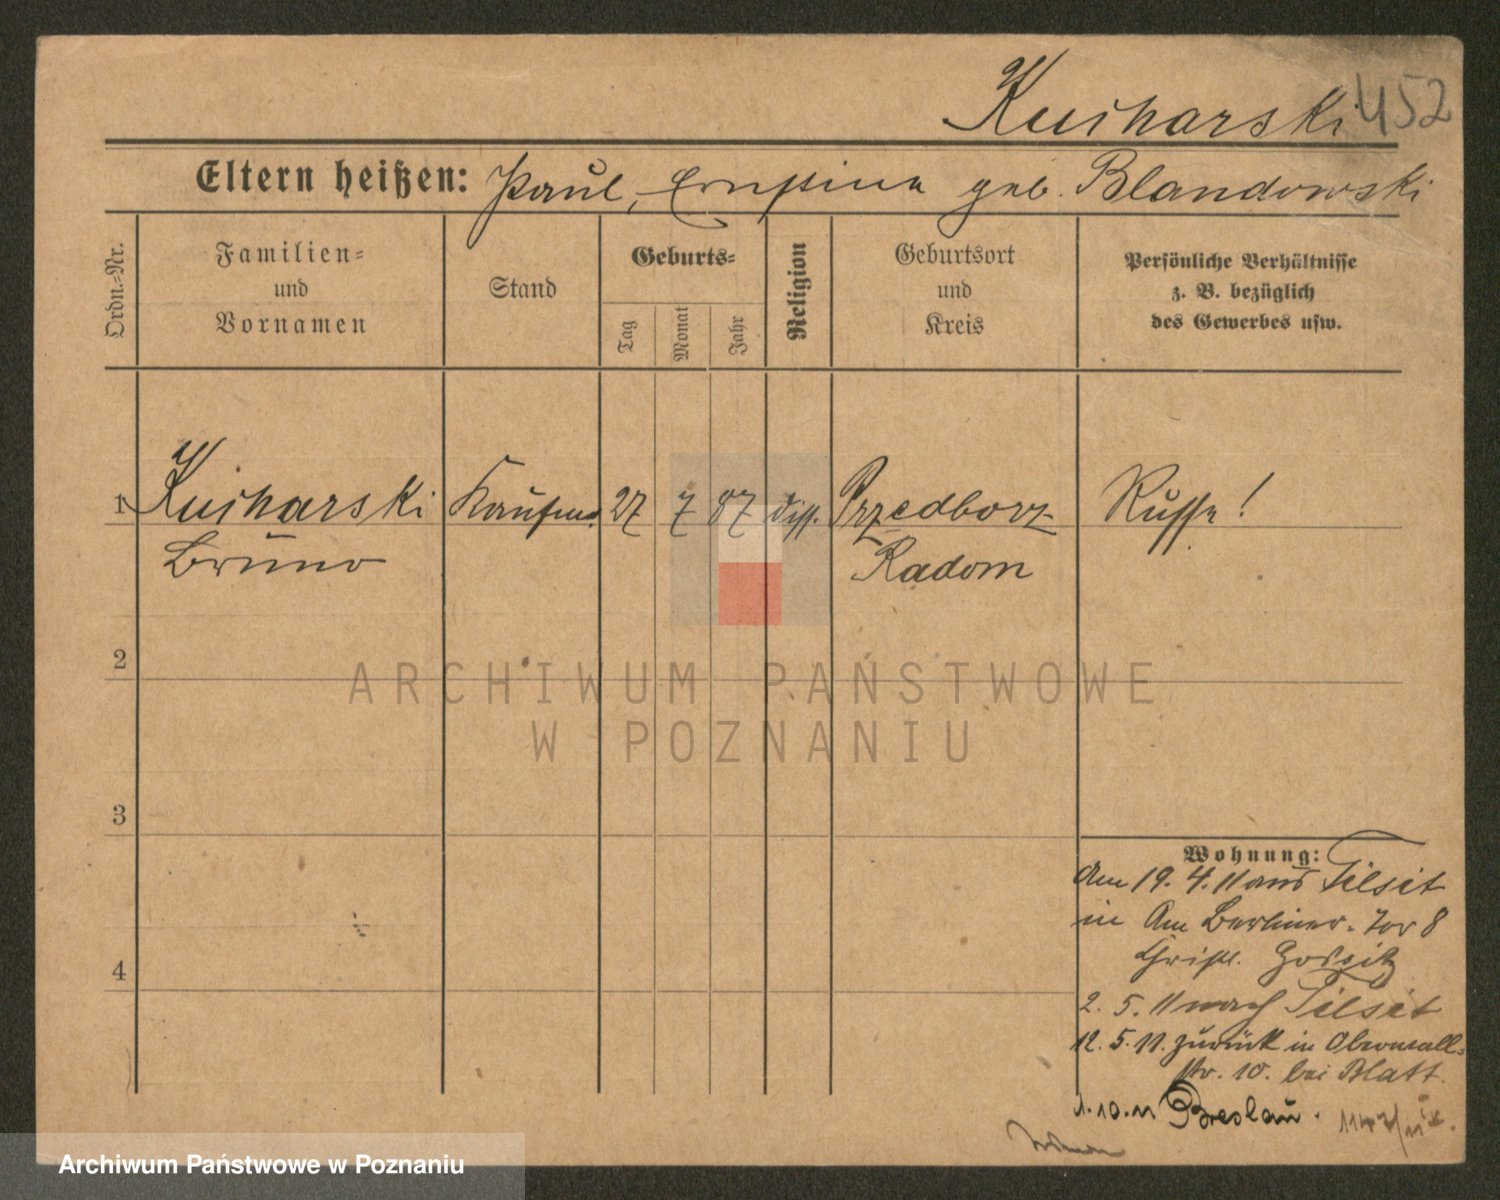 Kucharski 452
Eltern heißen: Paul, Ernestine geb. Blandowski
Ordn.=Nr.
Familien=
und
Vornamen
Stand
Geburts=
Tag
Monat
Jahr
Religion
Geburtsort
und
Kreis
Persönliche Verhältnisse
z. B. bezüglich
des Gewerbes usw.
1 Kucharski Kaufm. 27 7 87 diss. Przedborz Russe!
Bruno Radom
2
ARCHIWUM PAŃSTWOWE
W POZNANIU
3
Wohnung:
Am 19. 4. 11 aus Tilsit
in Am Berliner-Tor 8
2. 5. 11 nach Tilsit
12. 5. 11. zurück in Oberwall=
str. 10. bei Blatt.
4
1.10.11 Breslau.
Archiwum Państwowe w Poznaniu